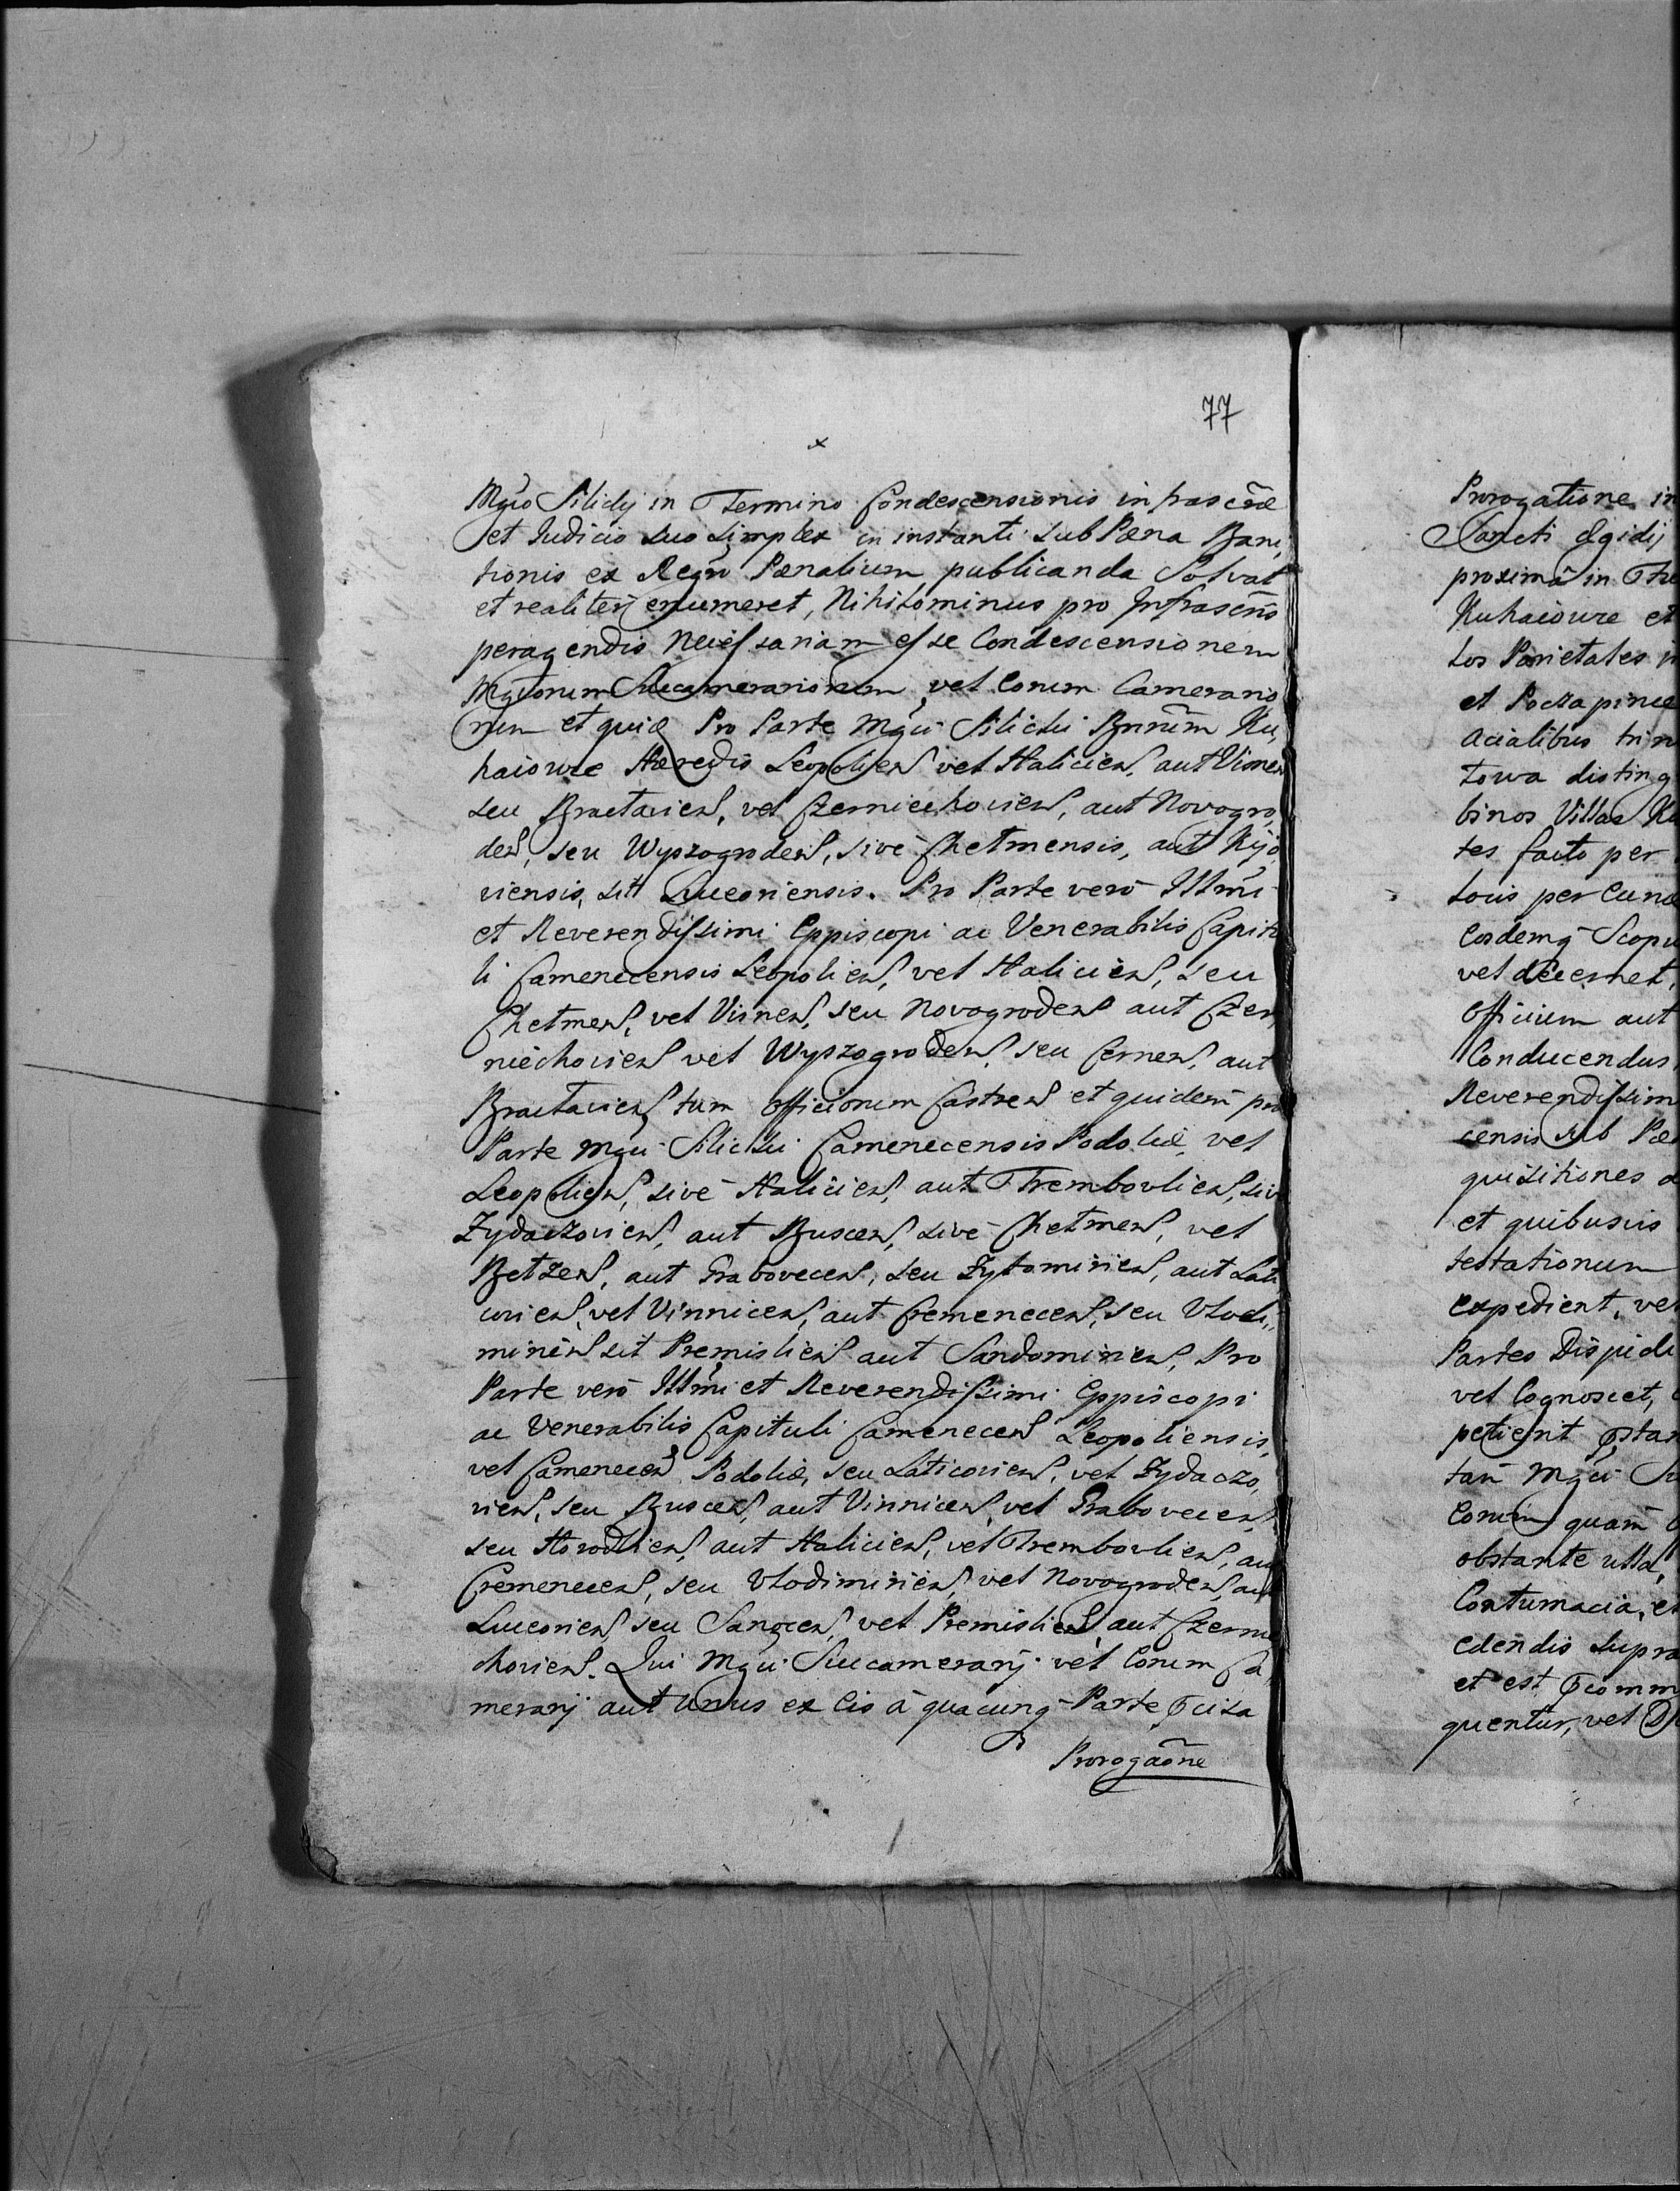 77
x
Mgco Silicky in Termino Condescensionis infrascõe
et Iudicio suo simplex in instanti sub Pæna Bani,
tionis ex Regno Pænalium publicanda Solvat
et realiter enumeret, Nihilominus pro Infrascõis
peragendis necessariam esse Condescensionem
Mgcorum Succamerariorum, vel Eorum Camerario
rum et quidē Pro Parte Mgci Silicki Bnrūm Ku,
haiowce Hæredis Leopolien, vel Halicien, aut Visnen
seu Braclavien, vel Czerniechovien, aut Novogro,
den, seu Wyszogroden, sive Chelmensis, aut Kijo
viensis, sit Luceoriensis. Pro Parte verò Illmi
et Reverendissimi Eppiscopi ac Venerabilis Capitu
li Camenecensis Leopolien, vel Halicien, seu
Chelmen, vel Visnen, seu Novogroden aut Czer
niechovien vel Wyszogroden, seu Cernen, aut
Braclavien tum Officiorum Castren et quidem pro
Parte Mgci Silicki Camenecensis Podoliæ, vel
Leopolien, sivè Halicien, aut Trembovlien, siv
Zydaczovien, aut Buscen, sivè Chelmen, vel
Belzen, aut Grabovecen, seu Zytomirien, aut Lati
covien, vel Vinnicen, aut Cremenecen, seu Vlodi,,
mirien sit Premislien aut Sandomirien, Pro
Parte verò Illmi et Reverendissimi Eppiscopi
ac Venerabilis Capituli Camenecen Leopoliensis,
vel Camenecen Podoliæ, seu Laticovien, vel Zydaczo,
vien, seu Buscen, aut Vinnicen, vel Grabovecen,
seu Horodlien, aut Halicien, vel Trembovlien, aut
Cremenecen, seu Vlodimirien, vel Novogroden, aut
Luceorien, seu Sanocen, vel Premislien, aut Czernie
chovien. Qui Mgci Succamerarij vel Eorum Ca
merarij aut Unus ex Eis à quacunq Parte
Prorogaõne
Prorogatione in
Sancti Egidij
proximâ in
Kuhaiowce et
los Parietales
et Poczapince
acialibus
towa disting
binos Villas Ku
tes facto per
Locis per
Eosdemq Scopu
vel decernet,
Officium aut
Conducendus,
Reverendissim
censis sub Pæ
quisitiones
et quibusvis
testationum
expedient, vel
Partes
vel Cognoscet,
petient
tam Mgci
Eorum quam
obstante ulla,
Contumacia, et
edendis supra
et est
quentur, vel